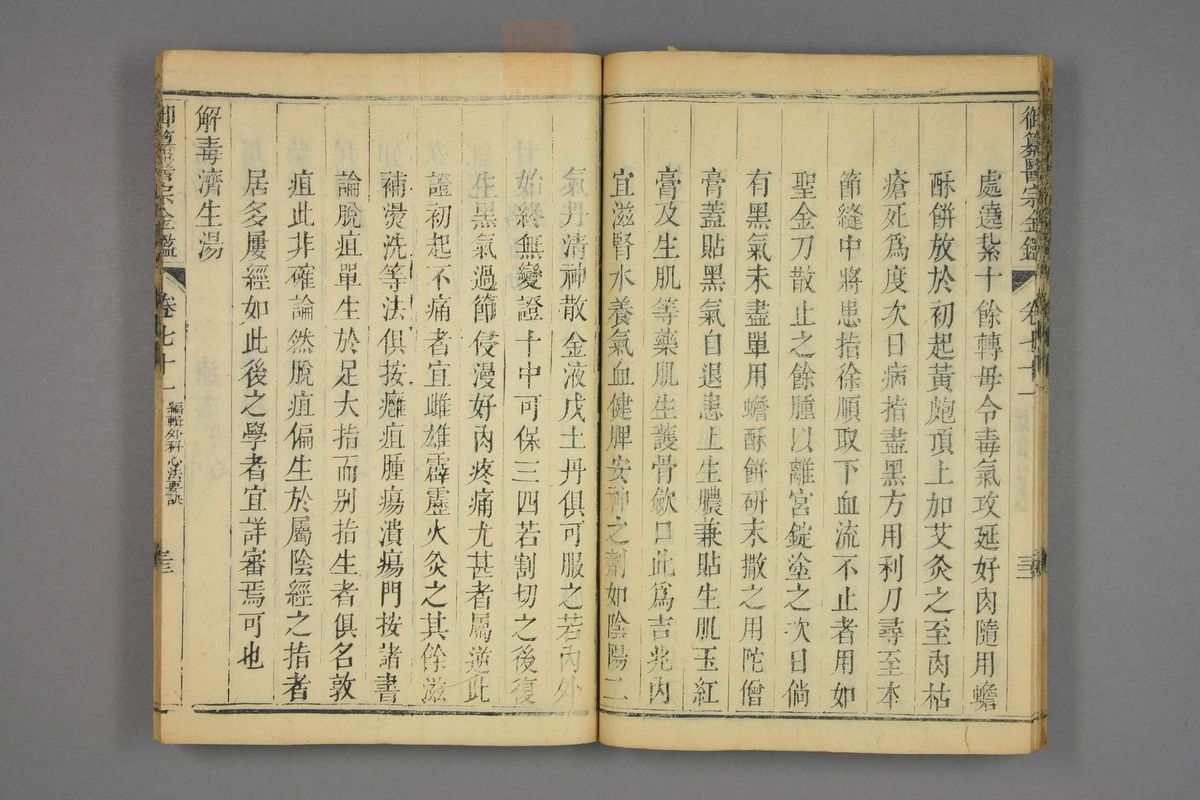 御纂醫宗金鑑 卷七十一
處遶紥十餘轉毋令毒氣攻延好肉隨用蟾
酥餅放於初起黃皰頂上加艾灸之至肉枯
瘡死爲度次日病指盡黑方用利刀尋至本
節縫中將患指徐順取下血流不止者用如
聖金刀散止之餘腫以離宮錠塗之次日倘
有黑氣未盡單用蟾酥餅研末撒之用陀僧
膏蓋貼黑氣自退患上生膿兼貼生肌玉紅
膏及生肌等藥肌生護骨斂口此爲吉兆內
宜滋腎水養氣血健脾安神之劑如陰陽二
氣丹清神散金液戊土丹俱可服之若內外
始終無變證十中可保三四若割切之後復
生黑氣過節侵漫好肉疼痛尤甚者屬逆此
證初起不痛者宜雌雄霹靂火灸之其餘滋
補燙洗等法俱按癰疽腫瘍潰瘍門按諸書
論脫疽單生於足大指而別指生者俱名敦
疽此非確論然脫疽偏生於屬陰經之指者
居多屢經如此後之學者宜詳審焉可也
解毒濟生湯
御纂醫宗金鑑 卷七十一 編輯外科心法要訣